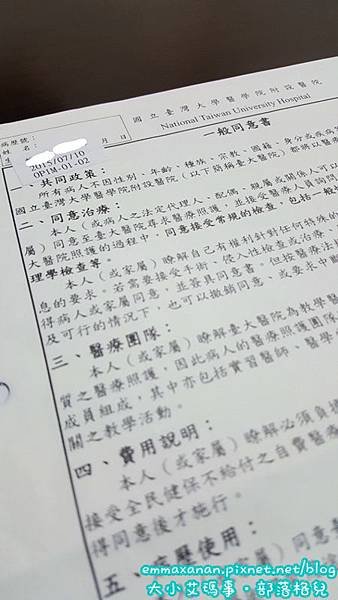 國立臺灣大學醫學院附設醫院
National Taiwan University Hospital
一般同意書
病歷號：
姓名：
月 日
2015/07/10
OPIM-01-02
一、共同政策：
所有病人不因性別、年齡、種族、宗教、國籍、身分或疾病
國立臺灣大學醫學院附設醫院（以下簡稱臺大醫院）都將以醫療
二、同意治療：
本人（或病人之法定代理人、配偶、親屬或關係人
屬）同意至臺大醫院尋求醫療照護，並接受醫療人員詢問
大醫院照護的過程中，同意接受常規的檢查，包括一般
理學檢查等。
本人（或家屬）瞭解自己有權利針對任何特殊的
息的要求。若需要接受手術、侵入性檢查或治療、
得病人或家屬同意，並簽具同意書。但按醫療法
及可行的情況下，也可以撤銷同意、或要求中斷
三、醫療團隊：
本人（或家屬）瞭解臺大醫院為教學醫
質之醫療照護，因此病人的醫療照護團隊
成員組成，其中亦包括實習醫師、醫學
關之教學活動。
四、費用說明：
本人（或家屬）瞭解必須負擔
接受全民健保不給付之自費醫療
得同意後才施行。
五、病歷使用：
本人（或家屬）同意
emmaxanan.pixnet.net/blog
大小艾瑪事・部落格兒